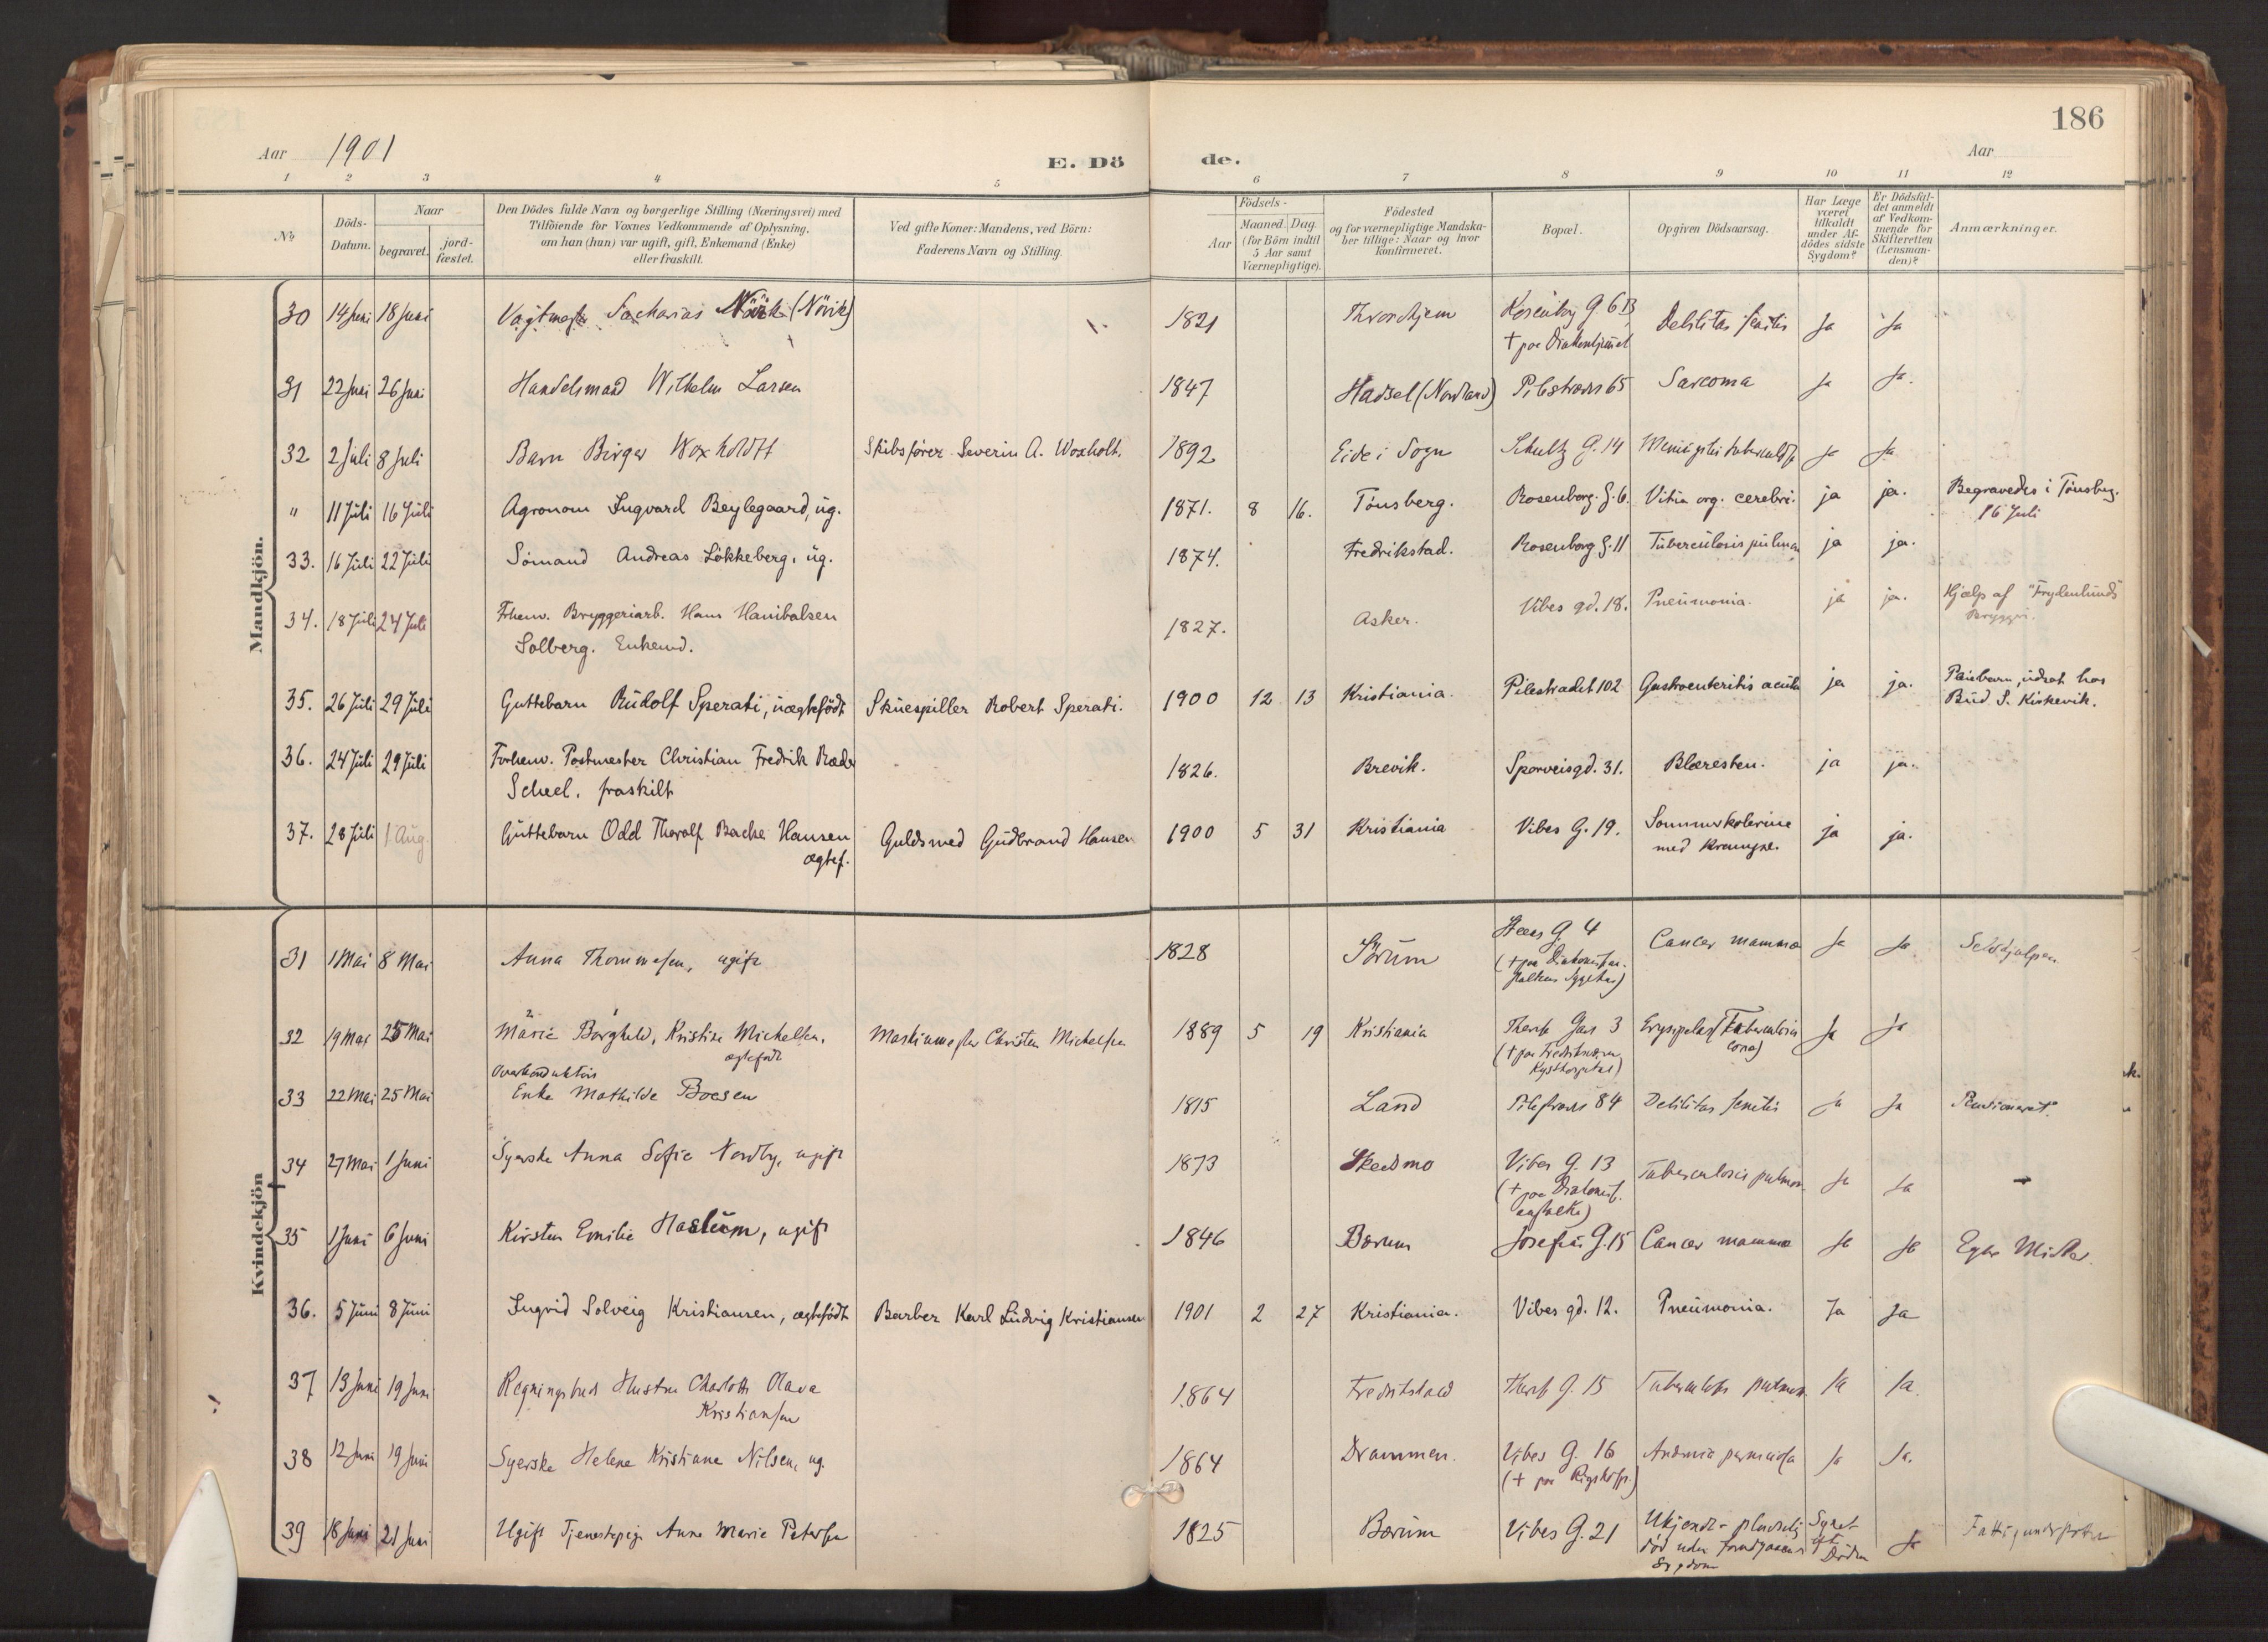 186
Aar 1901
E. Dö de.
Aar
1 2 3 4 5 6 7 8 9 10 11 12
No
Döds-
Datum.
Naar
begravet.
jord-
fæstet.
Den Dödes fulde Navn og borgerlige Stilling (Næringsvei) med
Tilföiende for Voxnes Vedkommende af Oplysning,
om han (hun) var ugift, gift, Enkemand (Enke)
eller fraskilt.
Ved gifte Koner: Mandens, ved Börn:
Faderens Navn og Stilling.
Födsels-
Aar
Maaned. Dag.
(for Börn indtil
5 Aar samt
Værnepligtige).
Födested
og for værnepligtige Mandska-
ber tillige: Naar og hvor
konfirmeret.
Bopæl.
Opgiven Dödsaarsag.
Har Læge
været
tilkaldt
under Af-
dödes sidste
Sygdom?
Er Dödsfal-
det anmeldt
af Vedkom-
mende for
Skifteretten
(Lensman-
den)?
Anmærkninger.
Mandkjön.
30 14 Juni 18 Juni Sacharias (Növik) 1821 Throndhjem G. 6 B Debilitas senilis Ja Ja
+ paa
31 22 Juni 26 Juni Handelsmand Wilhelm Larsen 1847 Hadsel (Nordland) Pilestrædet 65 Sarcoma Ja Ja.
32 2 Juli 8 Juli Barn Birger Woxholdt Skibsfører Severin A. Woxholt. 1892 Eide i Sogn Schultz G. 14 Ja Ja
" 11 Juli 16 Juli Agronom Ingvard Beylegaard, ug. 1871. 8 16. Tönsberg. Rosenborg. g. 6. Vitia org. cerebri. ja ja. Begravedes i Tönsberg.
16 Juli
33. 16 Juli 22 Juli Sömand Andreas Lökkeberg, ug. 1874. Fredrikstad. Rosenborg g. 11 Tuberculosis pulmon ja ja.
34. 18 Juli 24 Juli Fhenv. Bryggeriarb. Hans Hanibalsen 1827. Asker. Vibes gd. 18. Pneumonia. ja ja. Hjælp af "Frydenlunds"
Solberg. Enkemd. Bryggeri.
35. 26 Juli 29 Juli Guttebarn Rudolf Sperati, uægtefödt Skuespiller Robert Sperati. 1900 12 13 Kristiania. Pilestrædet 102 Gastroenteritis acuta ja ja. Pleiebarn, udsat hos
Bud S. Kirkevik.
36. 24 Juli 29 Juli Forhenv. Postmester Christian Fredrik Ræder 1826. Brevik. Sporveisgd. 31. Blæresten. ja ja.
Scheel. fraskilt
37. 28 Juli 1 Aug. Guttebarn Odd Thoralf Bache Hansen Guldsmed Gudbrand Hansen 1900 5 31 Kristiania Vibes G. 19. Sommerkolerine ja ja.
ægtef. med Krampe.
Kvindekjön
31 1 Mai 8 Mai Anna Thommesen, ugift 1828 Sörum G 4 Cancer mamma Ja Ja Selvhjulpen
32 19 Mai 25 Mai Marie Borghild, Kristine Michelsen, Maskinmester Christen Michelsen 1889 5 19 Kristiania Theres Gas 3 Ja Ja
ægtefödt
33 22 Mai 25 Mai Enke Mathilde Boesen 1815 Land Pilestræde 84 Debilitas senilis Ja Ja Pensioneret.
34 27 Mai 1 Juni Syerske Anna Sofie Nordby, ugift 1873 Skedsmo Vibes G. 13 Tuberculosis pulmon. Ja Ja
35 1 Juni 6 Juni Kirsten Emilie Haslum, ugift 1846 Bærum Josefines G. 15 Cancer mamma Ja Ja Egne Midler.
36. 5 Juni 8 Juni Ingrid Solveig Kristiansen, ægtefödt Barber Karl Ludvig Kristiansen 1901 2 27 Kristiania. Vibes gd. 12. Pneumonia. Ja Ja
37 13 Juni 19 Juni Regningsbuds Hustru Charlotte Olava 1864 Fredrikstad Theres G. 15 Tuberculosis pulmon. Ja Ja.
Kristiansen
38 12 Juni 19 Juni Syerske Helene Kristiane Nilsen, ug. 1864 Drammen. Vibes G. 16 Ja Ja.
(+ paa Rigshosp.)
39 18 Juni 21 Juni Ugift Tjenestepige Anne Marie Petersen 1825 Bærum Vibes G. 21 Ukjendt - pludselig Ja
död uden
Sygdom